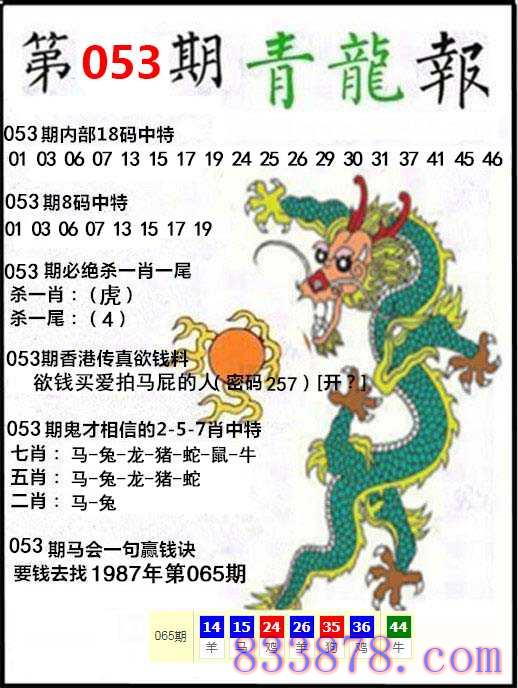 第053期青龍報
053期内部18码中特
01 03 06 07 13 15 17 19 24 25 26 29 30 31 37 41 45 46
053期8码中特
01 03 06 07 13 15 17 19
053期必绝杀一肖一尾
杀一肖：（虎）
杀一尾：（4）
053期香港传真欲钱料
欲钱买爱拍马屁的人（密码257）[开？]
053期鬼才相信的2-5-7肖中特
七肖：马-兔-龙-猪-蛇-鼠-牛
五肖：马-兔-龙-猪-蛇
二肖：马-兔
053期马会一句赢钱诀
要钱去找1987年第065期
065期 14 15 24 26 35 36 44
羊 马 鸡 羊 狗 鸡 牛
833878.com